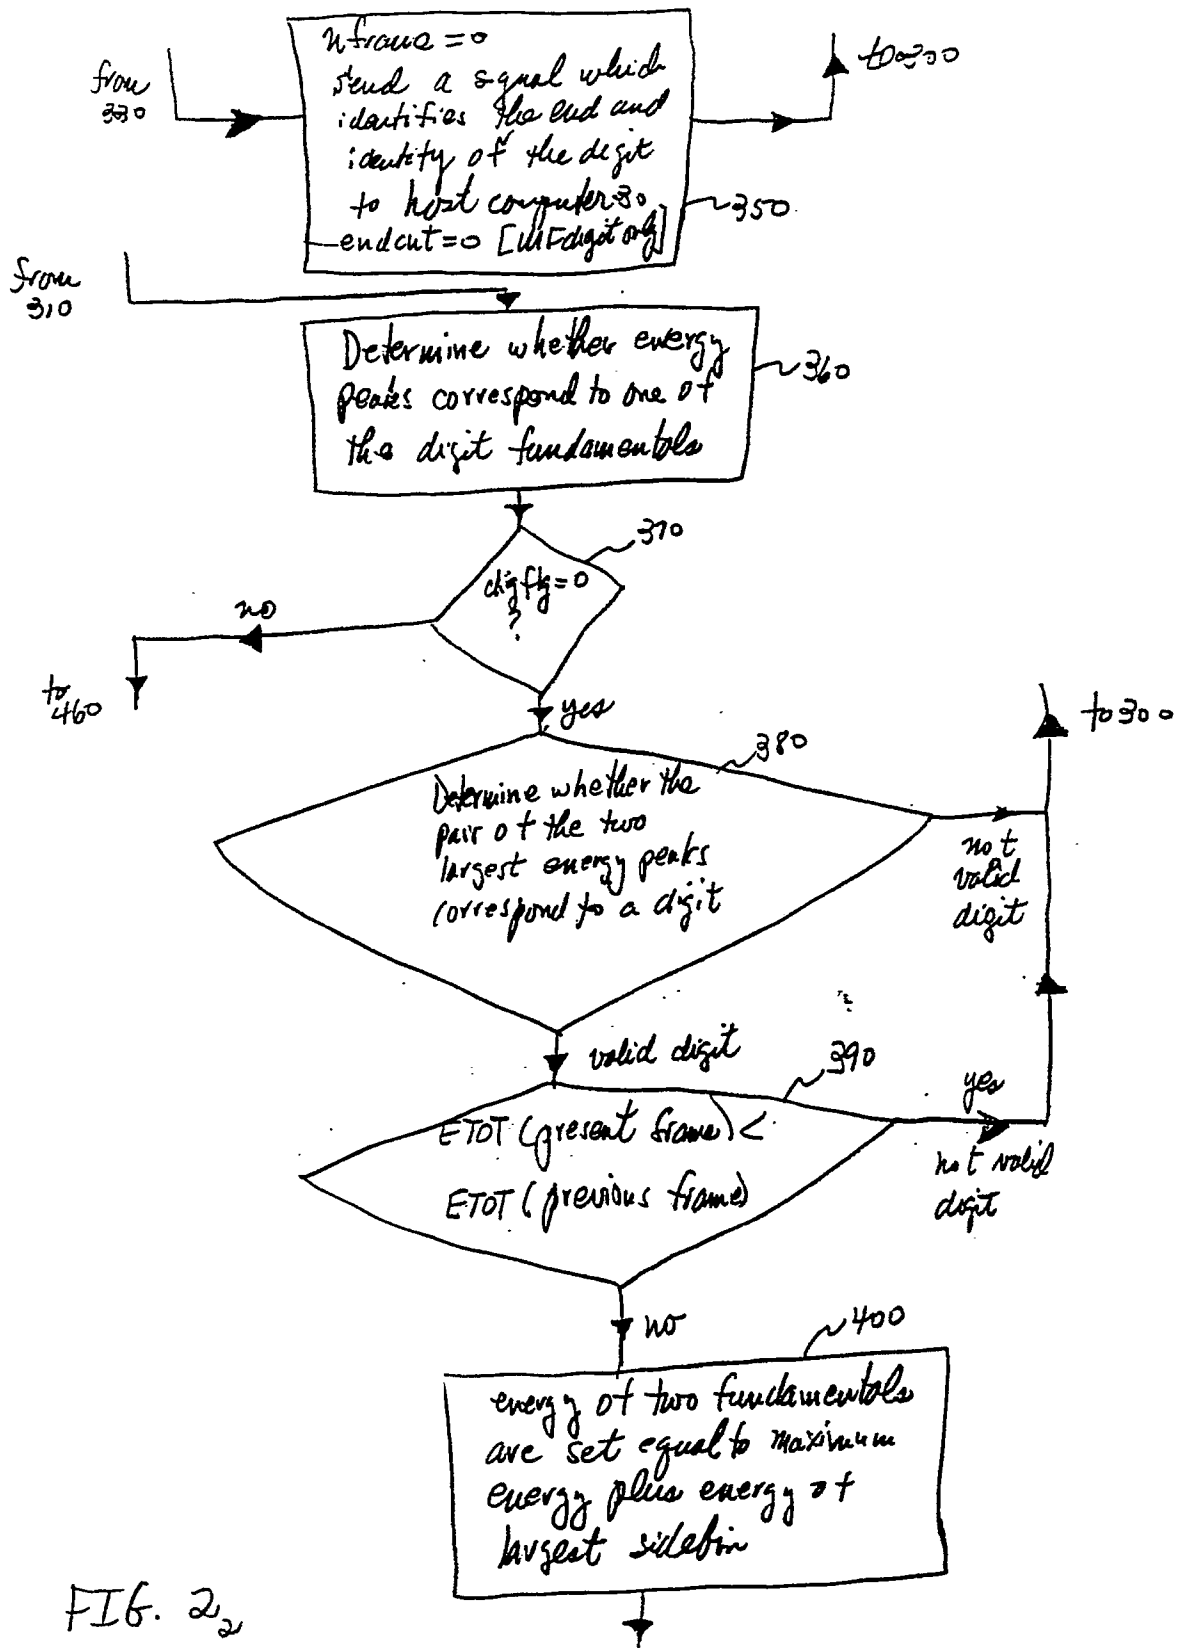 nframe = 0
send a signal which
identifies the end and
identity of the digit
to host computer 30
endcnt = 0 [MF digit only]
from
330
to 300
350
from
310
Determine whether energy
peaks correspond to one of
the digit fundamentals
360
370
digflg = 0
?
no
to
460
yes
380
to 300
Determine whether the
pair of the two
largest energy peaks
correspond to a digit
not
valid
digit
valid digit
390
ETOT (present frame) <
ETOT (previous frame)
yes
not valid
digit
no
400
energy of two fundamentals
are set equal to maximum
energy plus energy of
largest sidebin
FIG. 2₂